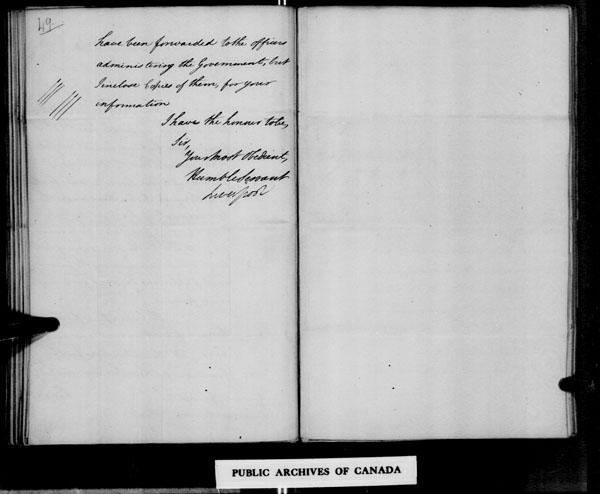 49
have been forwarded to the officers
administering the Government, but
I inclose Copies of them, for your
information
I have the honour to be,
Sir,
Your most Obedient,
Humble Servant
Liverpool
PUBLIC ARCHIVES OF CANADA